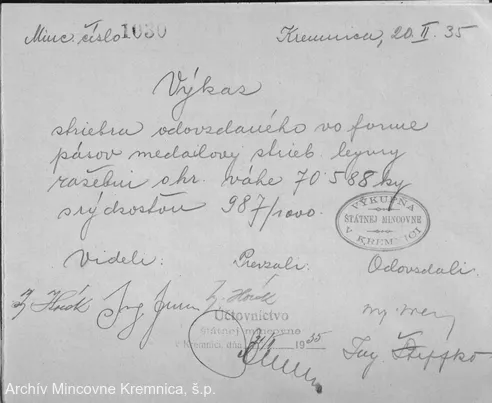 Minc. číslo 1030
Kremnica, 20.II.35
Výkaz
striebra odovzdaného vo forme
pásov medailovej strieb. legury
razebni o hr. váhe 70.588 kg
s rýdzosťou 987/1000.
VÝKUPŇA
ŠTÁTNEJ MINCOVNE
V KREMNICI
Videli: Prevzali: Odovzdali:
Horák Ing. Horák
Účtovníctvo
Štátnej mincovne
v Kremnici, dňa 1935
Šteffko
Archív Mincovne Kremnica, š.p.